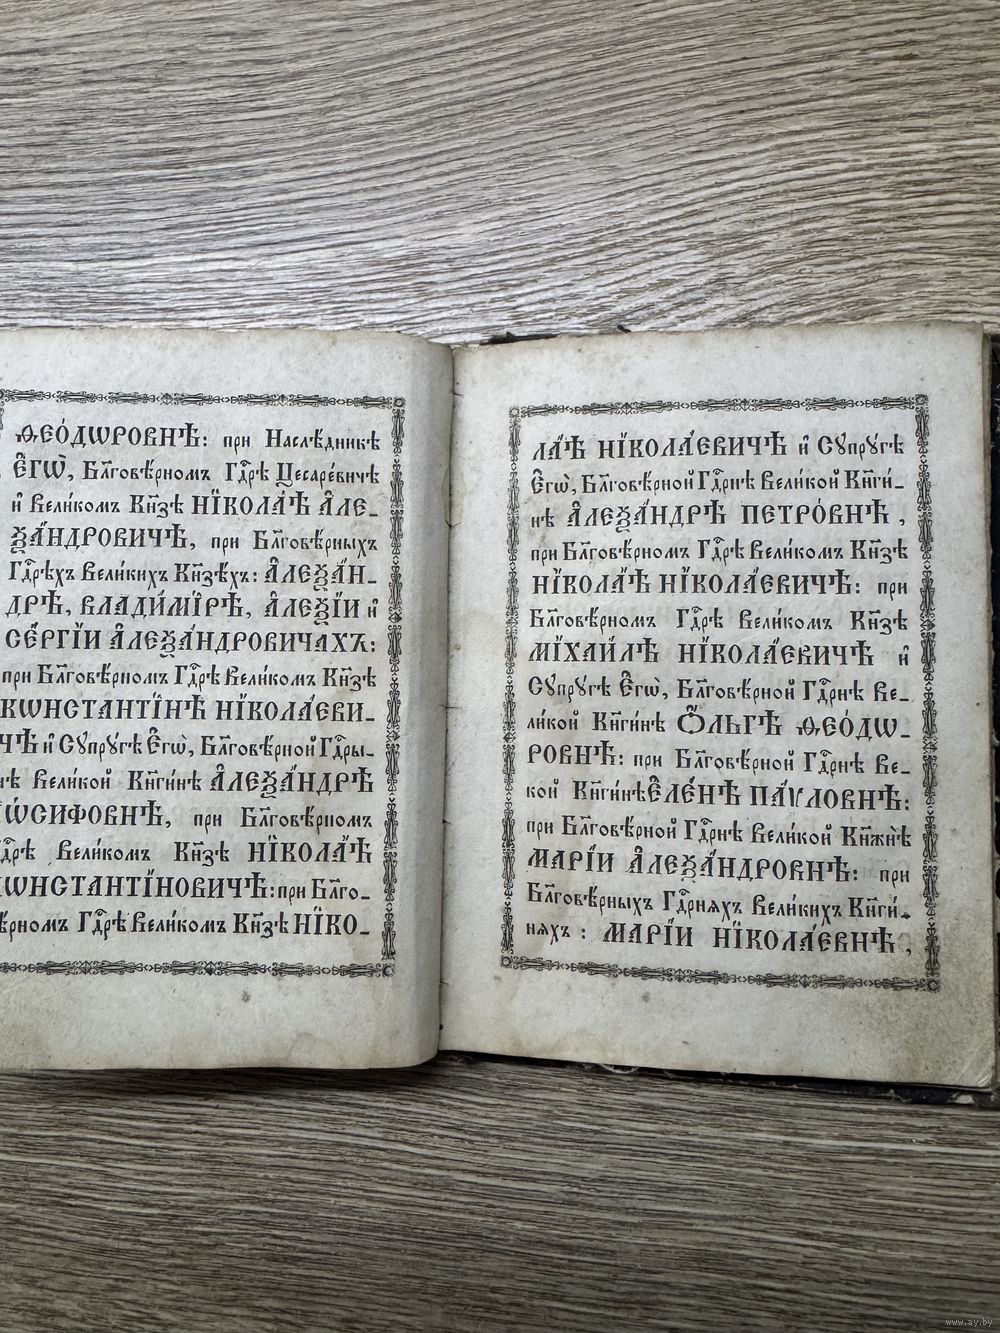 Ѳео́дѡровнѣ: при Наслѣ́дникѣ
Є҆гѡ̀, Бл҃говѣ́рномъ Гдⷭ҇рѣ Цесаре́вичѣ
и҆ Вели́комъ Кн҃зѣ НЇКОЛА́Ѣ А҆ЛЕ_
Ѯ҃А́НДРОВИЧѢ, при Бл҃говѣ́рныхъ
Гдⷭ҇рѣхъ Вели́кихъ Кн҃зѣхъ: А҆ЛЕѮА́Н_
ДРѢ, ВЛАДИ́МЇРѢ, А҆ЛЕѮІ́И и҆
СЕ́РГІИ А҆ЛЕѮА́НДРОВИЧАХЪ:
при Бл҃говѣ́рномъ Гдⷭ҇рѣ Вели́комъ Кн҃зѣ
КѠНСТАНТІ́НѢ НЇКОЛА́ЕВИ_
ЧѢ и҆ Сꙋпрꙋ́гѣ Є҆гѡ̀, Бл҃говѣ́рной Гдⷭ҇ры_
нѣ Вели́кой Кн҃ги́нѣ А҆ЛЕѮА́НДРѢ
І҆Ѡ́СИФОВНѢ, при Бл҃говѣ́рномъ
Гдⷭ҇рѣ Вели́комъ Кн҃зѣ НЇКОЛА́Ѣ
КѠНСТАНТІ́НОВИЧѢ: при Бл҃го_
вѣ́рномъ Гдⷭ҇рѣ Вели́комъ Кн҃зѣ НЇКО_
ЛА́Ѣ НЇКОЛА́ЕВИЧѢ и҆ Сꙋпрꙋ́гѣ
Є҆гѡ̀, Бл҃говѣ́рной Гдⷭ҇рнѣ Вели́кой Кн҃ги́_
нѣ А҆ЛЕѮА́НДРѢ ПЕТРО́ВНѢ,
при Бл҃говѣ́рномъ Гдⷭ҇рѣ Вели́комъ Кн҃зѣ
НЇКОЛА́Ѣ НЇКОЛА́ЕВИЧѢ: при
Бл҃говѣ́рномъ Гдⷭ҇рѣ Вели́комъ Кн҃зѣ
МЇХАИ́ЛѢ НЇКОЛА́ЕВИЧѢ и҆
Сꙋпрꙋ́гѣ Є҆гѡ̀, Бл҃говѣ́рной Гдⷭ҇рнѣ Ве_
ли́кой Кн҃ги́нѣ Ѻ҆́ЛЬГѢ ѲЕО́ДѠ_
РОВНѢ: при Бл҃говѣ́рной Гдⷭ҇рнѣ Ве_
кой Кн҃ги́нѣ ЕЛЕ́НѢ ПА́ѴЛОВНѢ:
при Бл҃говѣ́рной Гдⷭ҇рнѣ Вели́кой Кн҃жнѣ̀
МАРІ́И А҆ЛЕѮА́НДРОВНѢ: при
Бл҃говѣ́рныхъ Гдⷭ҇рняхъ Вели́кихъ Кн҃ги́_
няхъ: МАРІ́И НЇКОЛА́ЕВНѢ,
www.ay.by